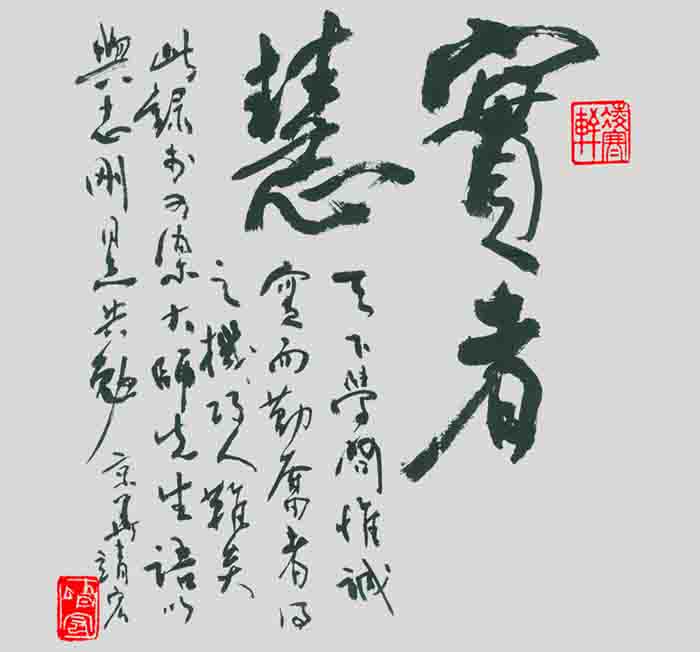 實者
慧
天下學問惟誠
實而勤奮者得
之機巧人難矣
此錄可染大師先生語以
與志剛共勉
京華靖宏
凌寒軒
靖宏